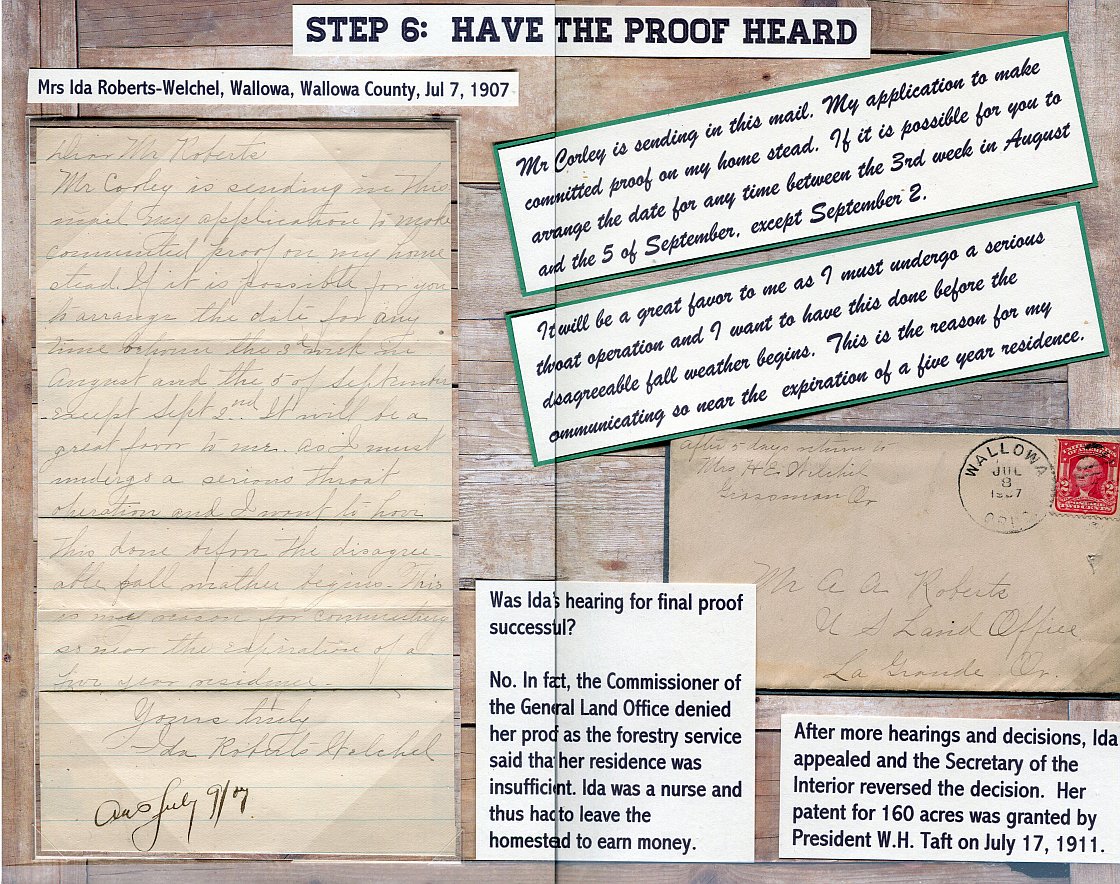 STEP 6: HAVE THE PROOF HEARD
Mrs Ida Roberts-Welchel, Wallowa, Wallowa County, Jul 7, 1907
Dear Mr Roberts
Mr Corley is sending in this
mail my application to make
commuted proof on my home
stead. If it is possible for you
to arrange the date for any
time between the 3rd week in
August and the 5 of September
except Sept 2nd. It will be a
great favor to me as I must
undergo a serious throat
operation and I want to have
this done before the disagree-
able fall weather begins. This
is my reason for commuting
so near the expiration of a
five year residence.
Yours truly
Ida Roberts-Welchel
Ans July 9/07
Mr Corley is sending in this mail. My application to make
committed proof on my home stead. If it is possible for you to
arrange the date for any time between the 3rd week in August
and the 5 of September, except September 2.
It will be a great favor to me as I must undergo a serious
throat operation and I want to have this done before the
dsagreeable fall weather begins. This is the reason for my
ommunicating so near the expiration of a five year residence.
after 5 days return to
Mrs H E Welchel
Grossman Or
WALLOWA
JUL
8
1907
2
TWO CENTS
Mr A A Roberts
U S Land Office
La Grande Or.
Was Ida's hearing for final proof
successful?
No. In fact, the Commissioner of
the General Land Office denied
her proof as the forestry service
said that her residence was
insufficient. Ida was a nurse and
thus had to leave the
homestead to earn money.
After more hearings and decisions, Ida
appealed and the Secretary of the
Interior reversed the decision. Her
patent for 160 acres was granted by
President W.H. Taft on July 17, 1911.